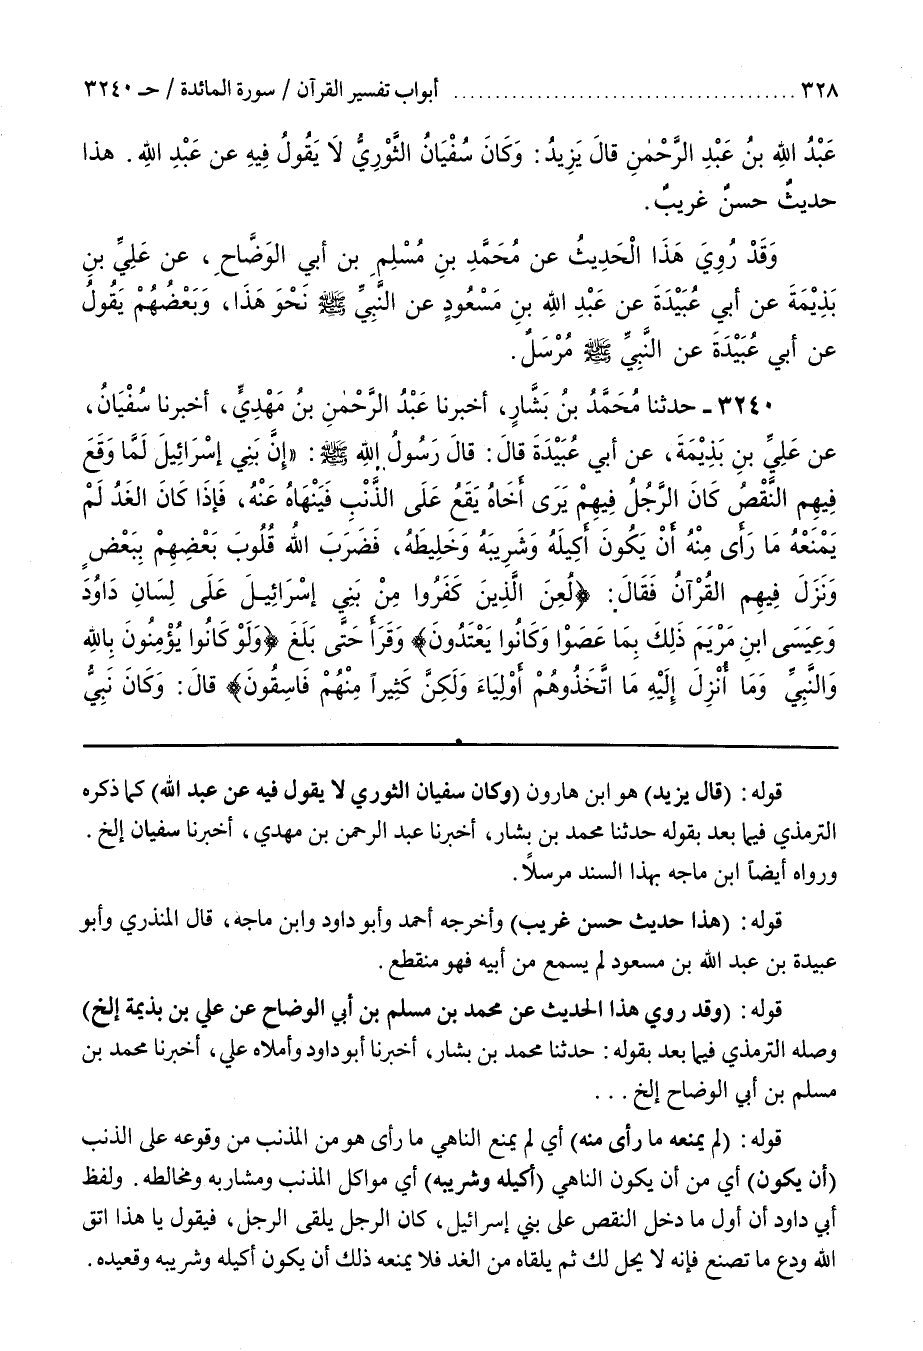 ٣٢٨ ........................................ أبواب تفسير القرآن / سورة المائدة / حـ ٣٢٤٠
عَبْدُ اللهِ بنُ عَبْدِ الرَّحْمٰنِ قالَ يَزِيدُ: وَكَانَ سُفْيَانُ الثَّوْرِيُّ لَا يَقُولُ فِيهِ عن عَبْدِ اللهِ. هذا
حديثٌ حسنٌ غريبٌ.
وَقَدْ رُوِيَ هَذَا الْحَدِيثُ عن مُحَمَّدِ بنِ مُسْلِمِ بن أبي الوَضَّاحِ، عن عَلِيِّ بنِ
بَذِيْمَةَ عن أبي عُبَيْدَةَ عن عَبْدِ اللهِ بنِ مَسْعُودٍ عن النَّبِيِّ ﷺ نَحْوَ هَذَا، وَبَعْضُهُمْ يَقُولُ
عن أبي عُبَيْدَةَ عن النَّبِيِّ ﷺ مُرْسَلٌ.
٣٢٤٠ ـ حدثنا مُحَمَّدُ بنُ بَشَّارٍ، أخبرنا عَبْدُ الرَّحْمٰنِ بنُ مَهْدِيٍّ، أخبرنا سُفْيَانُ،
عن عَلِيِّ بنِ بَذِيْمَةَ، عن أبي عُبَيْدَةَ قالَ: قالَ رَسُولُ اللهِ ﷺ: «إنَّ بَنِي إسْرَائِيلَ لَمَّا وَقَعَ
فِيهِم النَّقْصُ كَانَ الرَّجُلُ فِيهِمْ يَرَى أَخَاهُ يَقَعُ عَلَى الذَّنْبِ فَيَنْهَاهُ عَنْهُ، فَإذَا كَانَ الغَدُ لَمْ
يَمْنَعْهُ مَا رَأى مِنْهُ أنْ يَكُونَ أكِيلَهُ وَشَرِيبَهُ وَخَلِيطَهُ، فَضَرَبَ اللهُ قُلُوبَ بَعْضِهِمْ بِبَعْضٍ
وَنَزَلَ فِيهِم القُرْآنُ فَقَالَ: ﴿لُعِنَ الَّذِينَ كَفَرُوا مِنْ بَنِي إسْرَائِيلَ عَلَى لِسَانِ دَاوُدَ
وَعِيَسَى ابنِ مَرْيَمَ ذَلِكَ بِمَا عَصَوْا وَكَانُوا يَعْتَدُونَ﴾ وَقَرَأَ حَتَّى بَلَغَ ﴿وَلَوْ كَانُوا يُؤْمِنُونَ بِاللهِ
وَالنَّبِيِّ وَمَا أُنْزِلَ إلَيْهِ مَا اتَّخَذُوهُمْ أَوْلِيَاءَ وَلَكِنَّ كَثِيراً مِنْهُمْ فَاسِقُونَ﴾ قالَ: وَكَانَ نَبِيُّ
قوله: (قال يزيد) هو ابن هارون (وكان سفيان الثوري لا يقول فيه عن عبد الله) كما ذكره
الترمذي فيما بعد بقوله حدثنا محمد بن بشار، أخبرنا عبد الرحمن بن مهدي، أخبرنا سفيان إلخ.
ورواه أيضاً ابن ماجه بهذا السند مرسلاً.
قوله: (هذا حديث حسن غريب) وأخرجه أحمد وأبو داود وابن ماجه، قال المنذري وأبو
عبيدة بن عبد الله بن مسعود لم يسمع من أبيه فهو منقطع.
قوله: (وقد روي هذا الحديث عن محمد بن مسلم بن أبي الوضاح عن علي بن بذيمة إلخ)
وصله الترمذي فيما بعد بقوله: حدثنا محمد بن بشار، أخبرنا أبو داود وأملاه علي، أخبرنا محمد بن
مسلم بن أبي الوضاح إلخ ...
قوله: (لم يمنعه ما رأى منه) أي لم يمنع الناهي ما رأى هو من المذنب من وقوعه على الذنب
(أن يكون) أي من أن يكون الناهي (أكيله وشريبه) أي مواكل المذنب ومشاربه ومخالطه. ولفظ
أبي داود أن أول ما دخل النقص على بني إسرائيل، كان الرجل يلقى الرجل، فيقول يا هذا اتق
الله ودع ما تصنع فإنه لا يحل لك ثم يلقاه من الغد فلا يمنعه ذلك أن يكون أكيله وشريبه وقعيده.